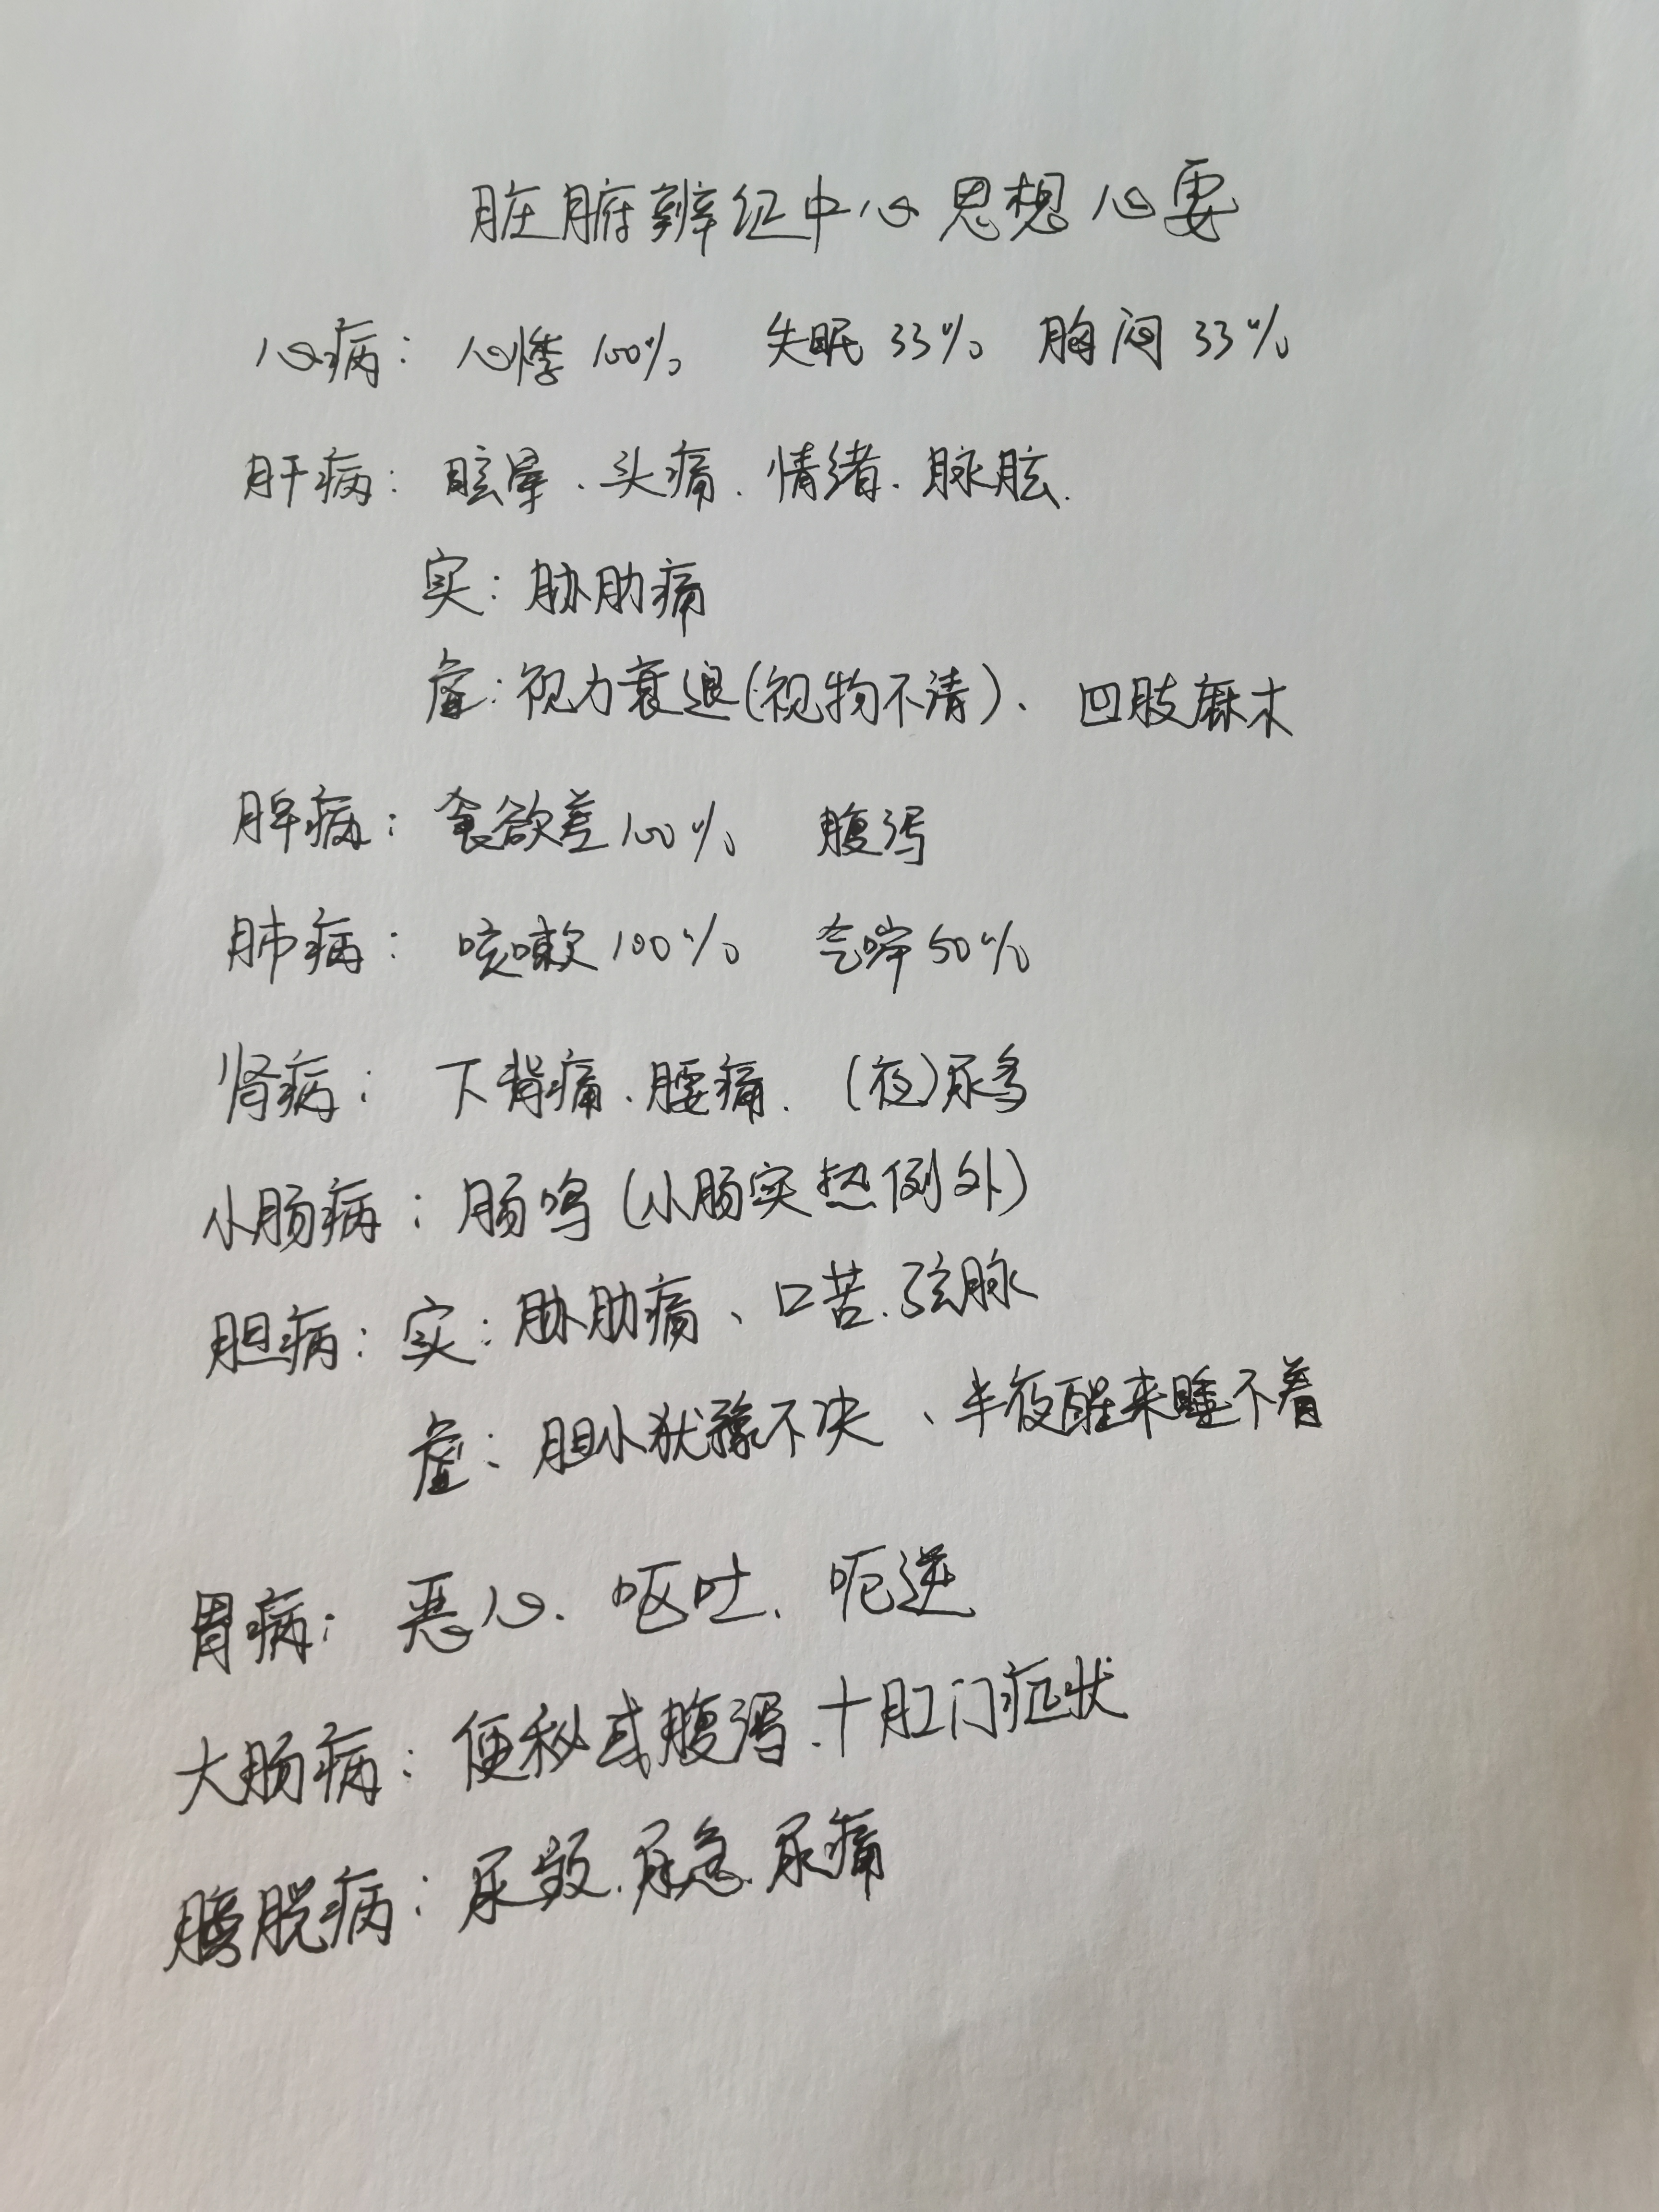 脏腑辨证中心思想心要
心病：心悸100% 失眠33% 胸闷33%
肝病：眩晕、头痛、情绪、脉胘.
实：胁肋痛
虚：视力衰退(视物不清)、四肢麻木
脾病：食欲差100% 腹泻
肺病：咳嗽100% 气喘50%
肾病：下背痛、腰痛、(夜)尿多
小肠病：肠鸣(小肠实热例外)
胆病：实：胁肋痛、口苦、弦脉
虚：胆小犹豫不决、半夜醒来睡不着
胃病：恶心、呕吐、呃逆
大肠病：便秘或腹泻、+肛门症状
膀胱病：尿数、尿急、尿痛